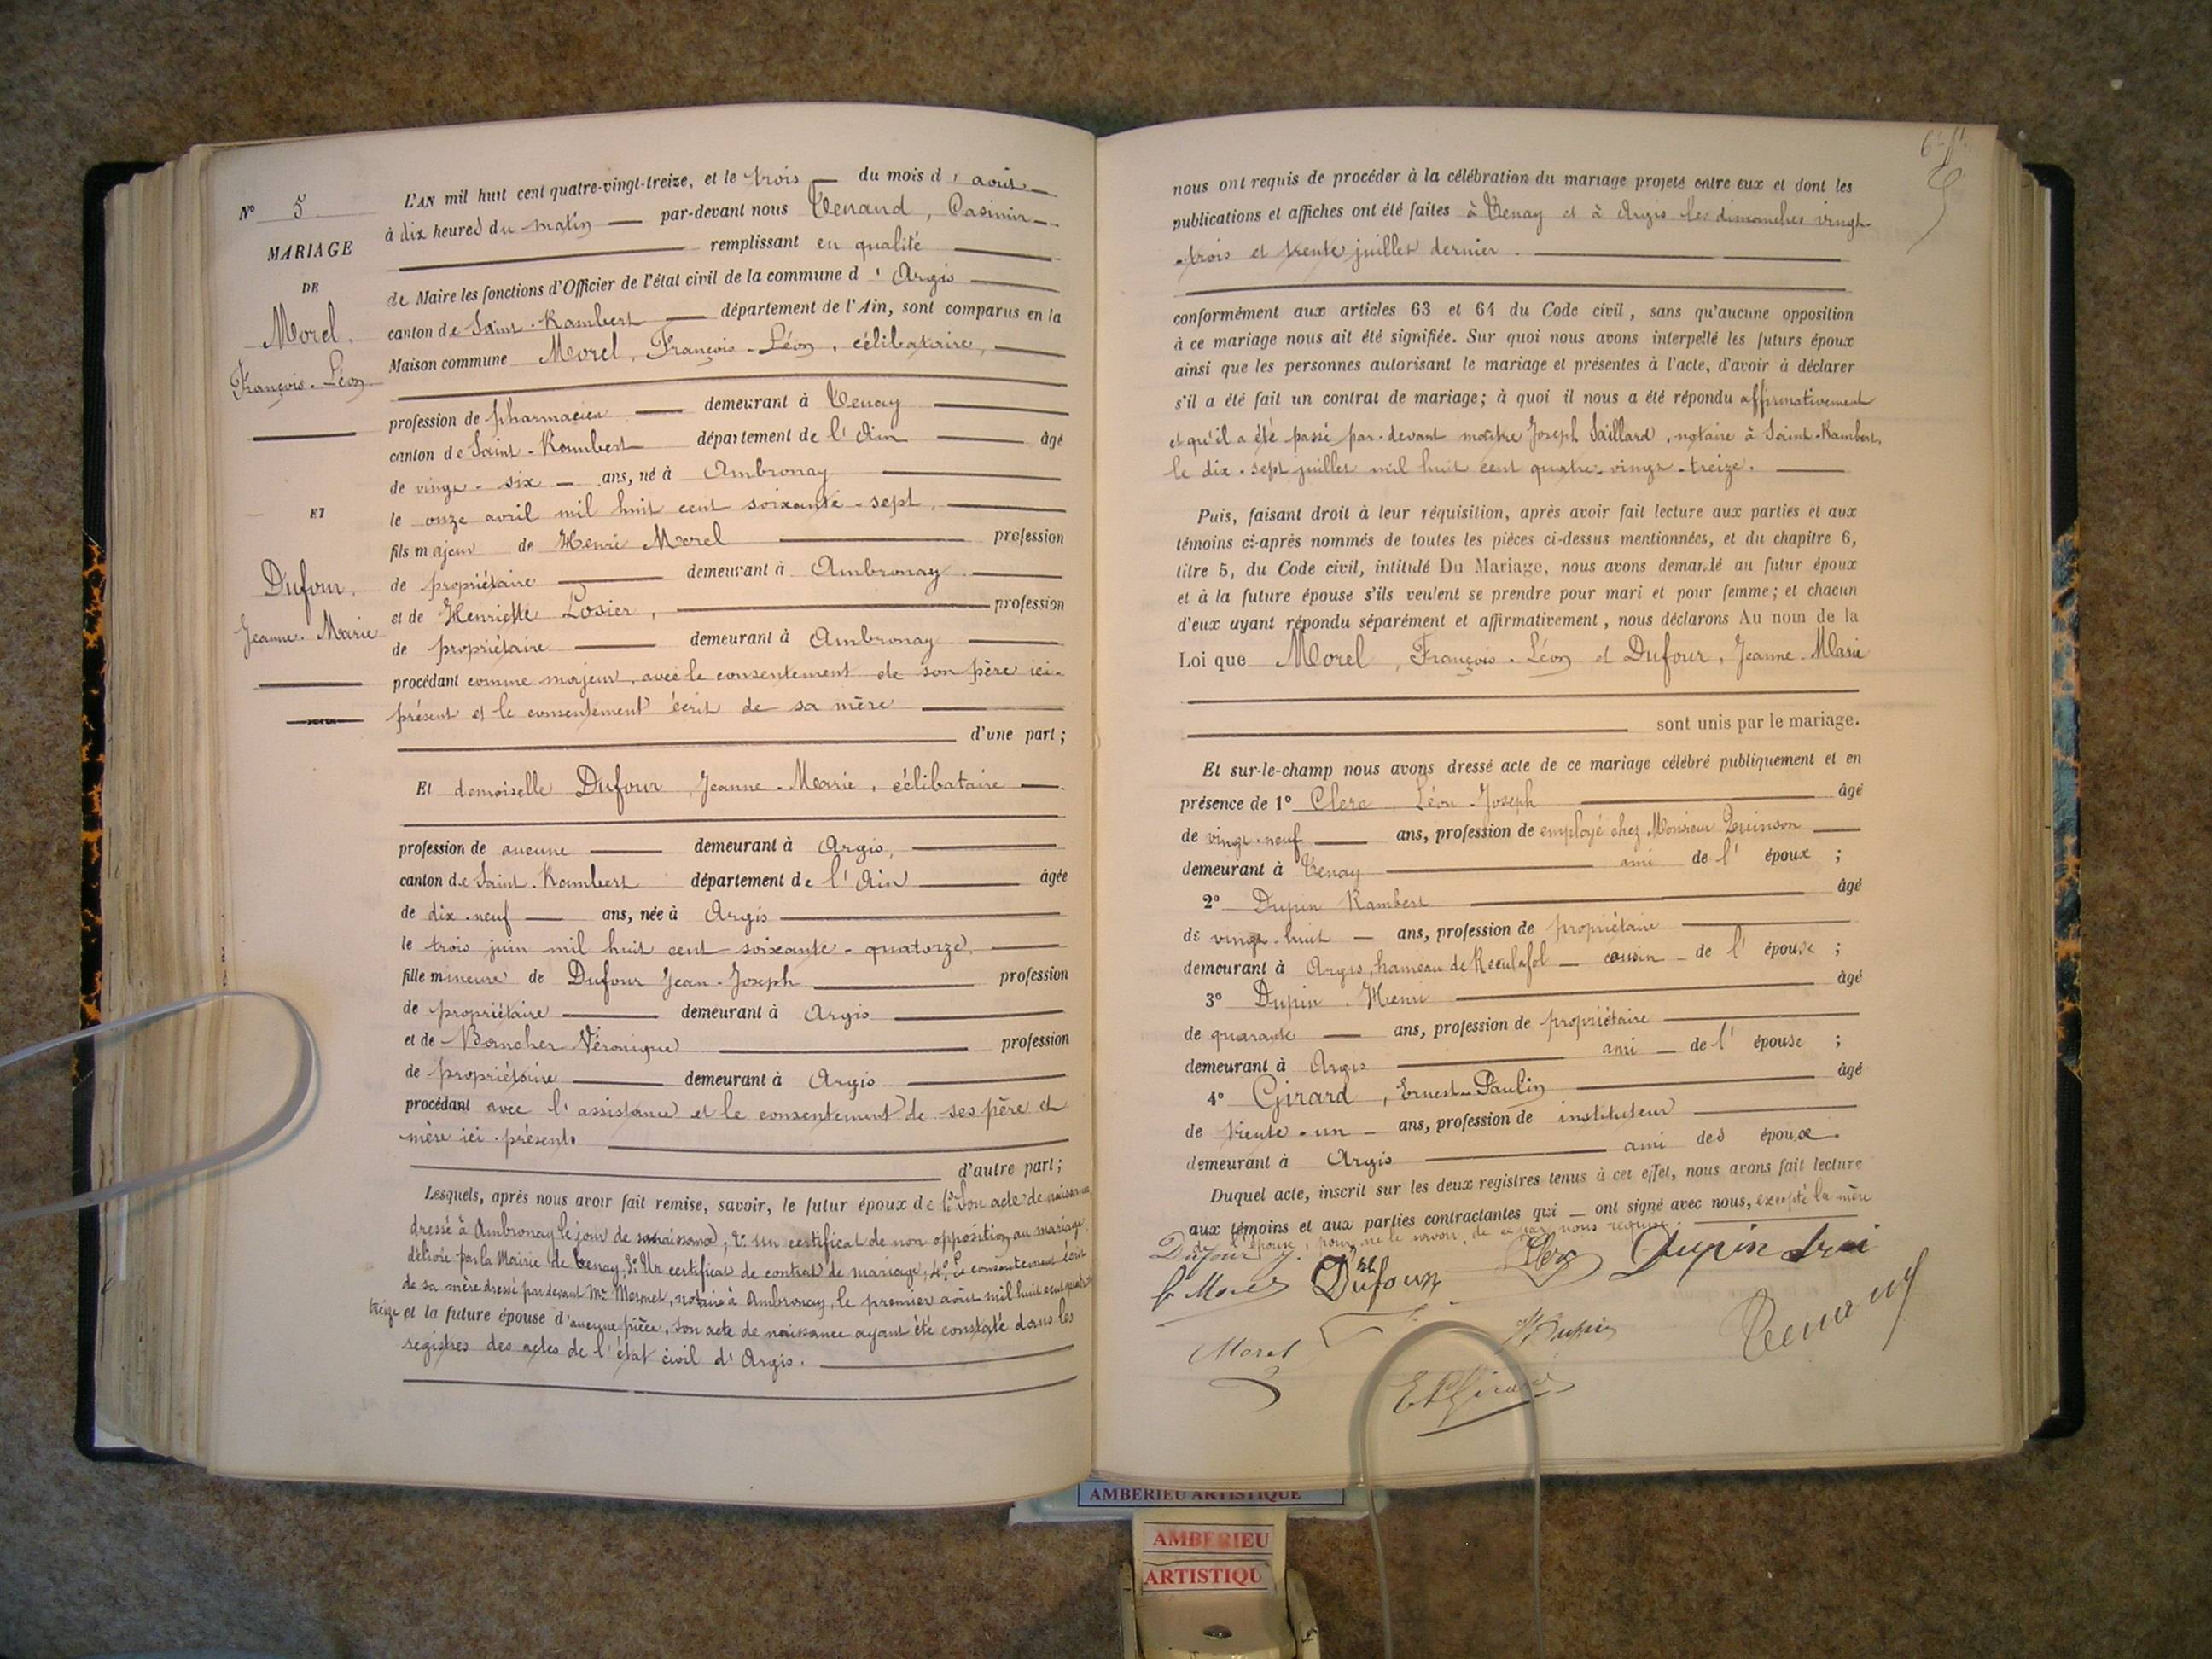 N° 5
MARIAGE
DE
Morel,
François-Léon
ET
Dufour,
Jeanne-Marie
L'AN mil huit cent quatre-vingt-treize, et le trois du mois d'août
à dix heures du matin par-devant nous Tenand, Casimir
remplissant en qualité
de Maire les fonctions d'Officier de l'état civil de la commune d'Argis
canton de Saint-Rambert département de l'Ain, sont comparus en la
Maison commune Morel, François-Léon, célibataire,
profession de pharmacien demeurant à Tenay
canton de Saint-Rambert département de l'Ain âgé
de vingt-six ans, né à Ambronay
le onze avril mil huit cent soixante-sept,
fils majeur de Henri Morel profession
de propriétaire demeurant à Ambronay
et de Henriette Losier, profession
de propriétaire demeurant à Ambronay
procédant comme majeur, avec le consentement de son père ici-
présent et le consentement écrit de sa mère
d'une part;
Et demoiselle Dufour, Jeanne-Marie, célibataire
profession de aucune demeurant à Argis,
canton de Saint-Rambert département de l'Ain âgée
de dix-neuf ans, née à Argis
le trois juin mil huit cent soixante-quatorze,
fille mineure de Dufour Jean-Joseph profession
de propriétaire demeurant à Argis
et de Borncher Véronique profession
de propriétaire demeurant à Argis
procédant avec l'assistance et le consentement de ses père et
mère ici-présents
d'autre part;
Lesquels, après nous avoir fait remise, savoir, le futur époux de 1° Son acte de naissance
dressé à Ambronay le jour de sa naissance; 2° Un certificat de non opposition au mariage
délivré par la Mairie de Tenay, 3° Un certificat de contrat de mariage, 4° Le consentement écrit
de sa mère dressé par devant Me Mermet, notaire à Ambronay, le premier août mil huit cent quatre
treize et la future épouse d'aucune pièce, son acte de naissance ayant été constaté dans les
registres des actes de l'état civil d'Argis.
nous ont requis de procéder à la célébration du mariage projeté entre eux et dont les
publications et affiches ont été faites à Tenay et à Argis les dimanches vingt-
-trois et trente juillet dernier.
conformément aux articles 63 et 64 du Code civil, sans qu'aucune opposition
à ce mariage nous ait été signifiée. Sur quoi nous avons interpellé les futurs époux
ainsi que les personnes autorisant le mariage et présentes à l'acte, d'avoir à déclarer
s'il a été fait un contrat de mariage; à quoi il nous a été répondu affirmativement
et qu'il a été passé par-devant maître Joseph Saillard, notaire à Saint-Rambert,
le dix-sept juillet mil huit cent quatre-vingt-treize.
Puis, faisant droit à leur réquisition, après avoir fait lecture aux parties et aux
témoins ci-après nommés de toutes les pièces ci-dessus mentionnées, et du chapitre 6,
titre 5, du Code civil, intitulé Du Mariage, nous avons demandé au futur époux
et à la future épouse s'ils veulent se prendre pour mari et pour femme; et chacun
d'eux ayant répondu séparément et affirmativement, nous déclarons Au nom de la
Loi que Morel, François-Léon et Dufour, Jeanne-Marie
sont unis par le mariage.
Et sur-le-champ nous avons dressé acte de ce mariage célébré publiquement et en
présence de 1° Clerc Léon-Joseph âgé
de vingt-neuf ans, profession de employé chez Monsieur Quinson
demeurant à Tenay ami de l'époux;
2° Dupin Rambert âgé
de vingt-huit ans, profession de propriétaire
demeurant à Argis, hameau de Reculafol cousin de l'épouse;
3° Dupin, Henri âgé
de quarante ans, profession de propriétaire
demeurant à Argis ami de l'épouse;
4° Girard, Ernest-Paulin âgé
de trente-un ans, profession de instituteur
demeurant à Argis ami des époux.
Duquel acte, inscrit sur les deux registres tenus à cet effet, nous avons fait lecture
aux témoins et aux parties contractantes qui ont signé avec nous, excepté la mère
de l'épouse, pour ne le savoir, de ce par nous requise.
Dufour J.
L Morel Dufour Clerc Dupin
Morel H Dupin Tenand
E P Girard
AMBERIEU ARTISTIQUE
AMBERIEU
ARTISTIQU